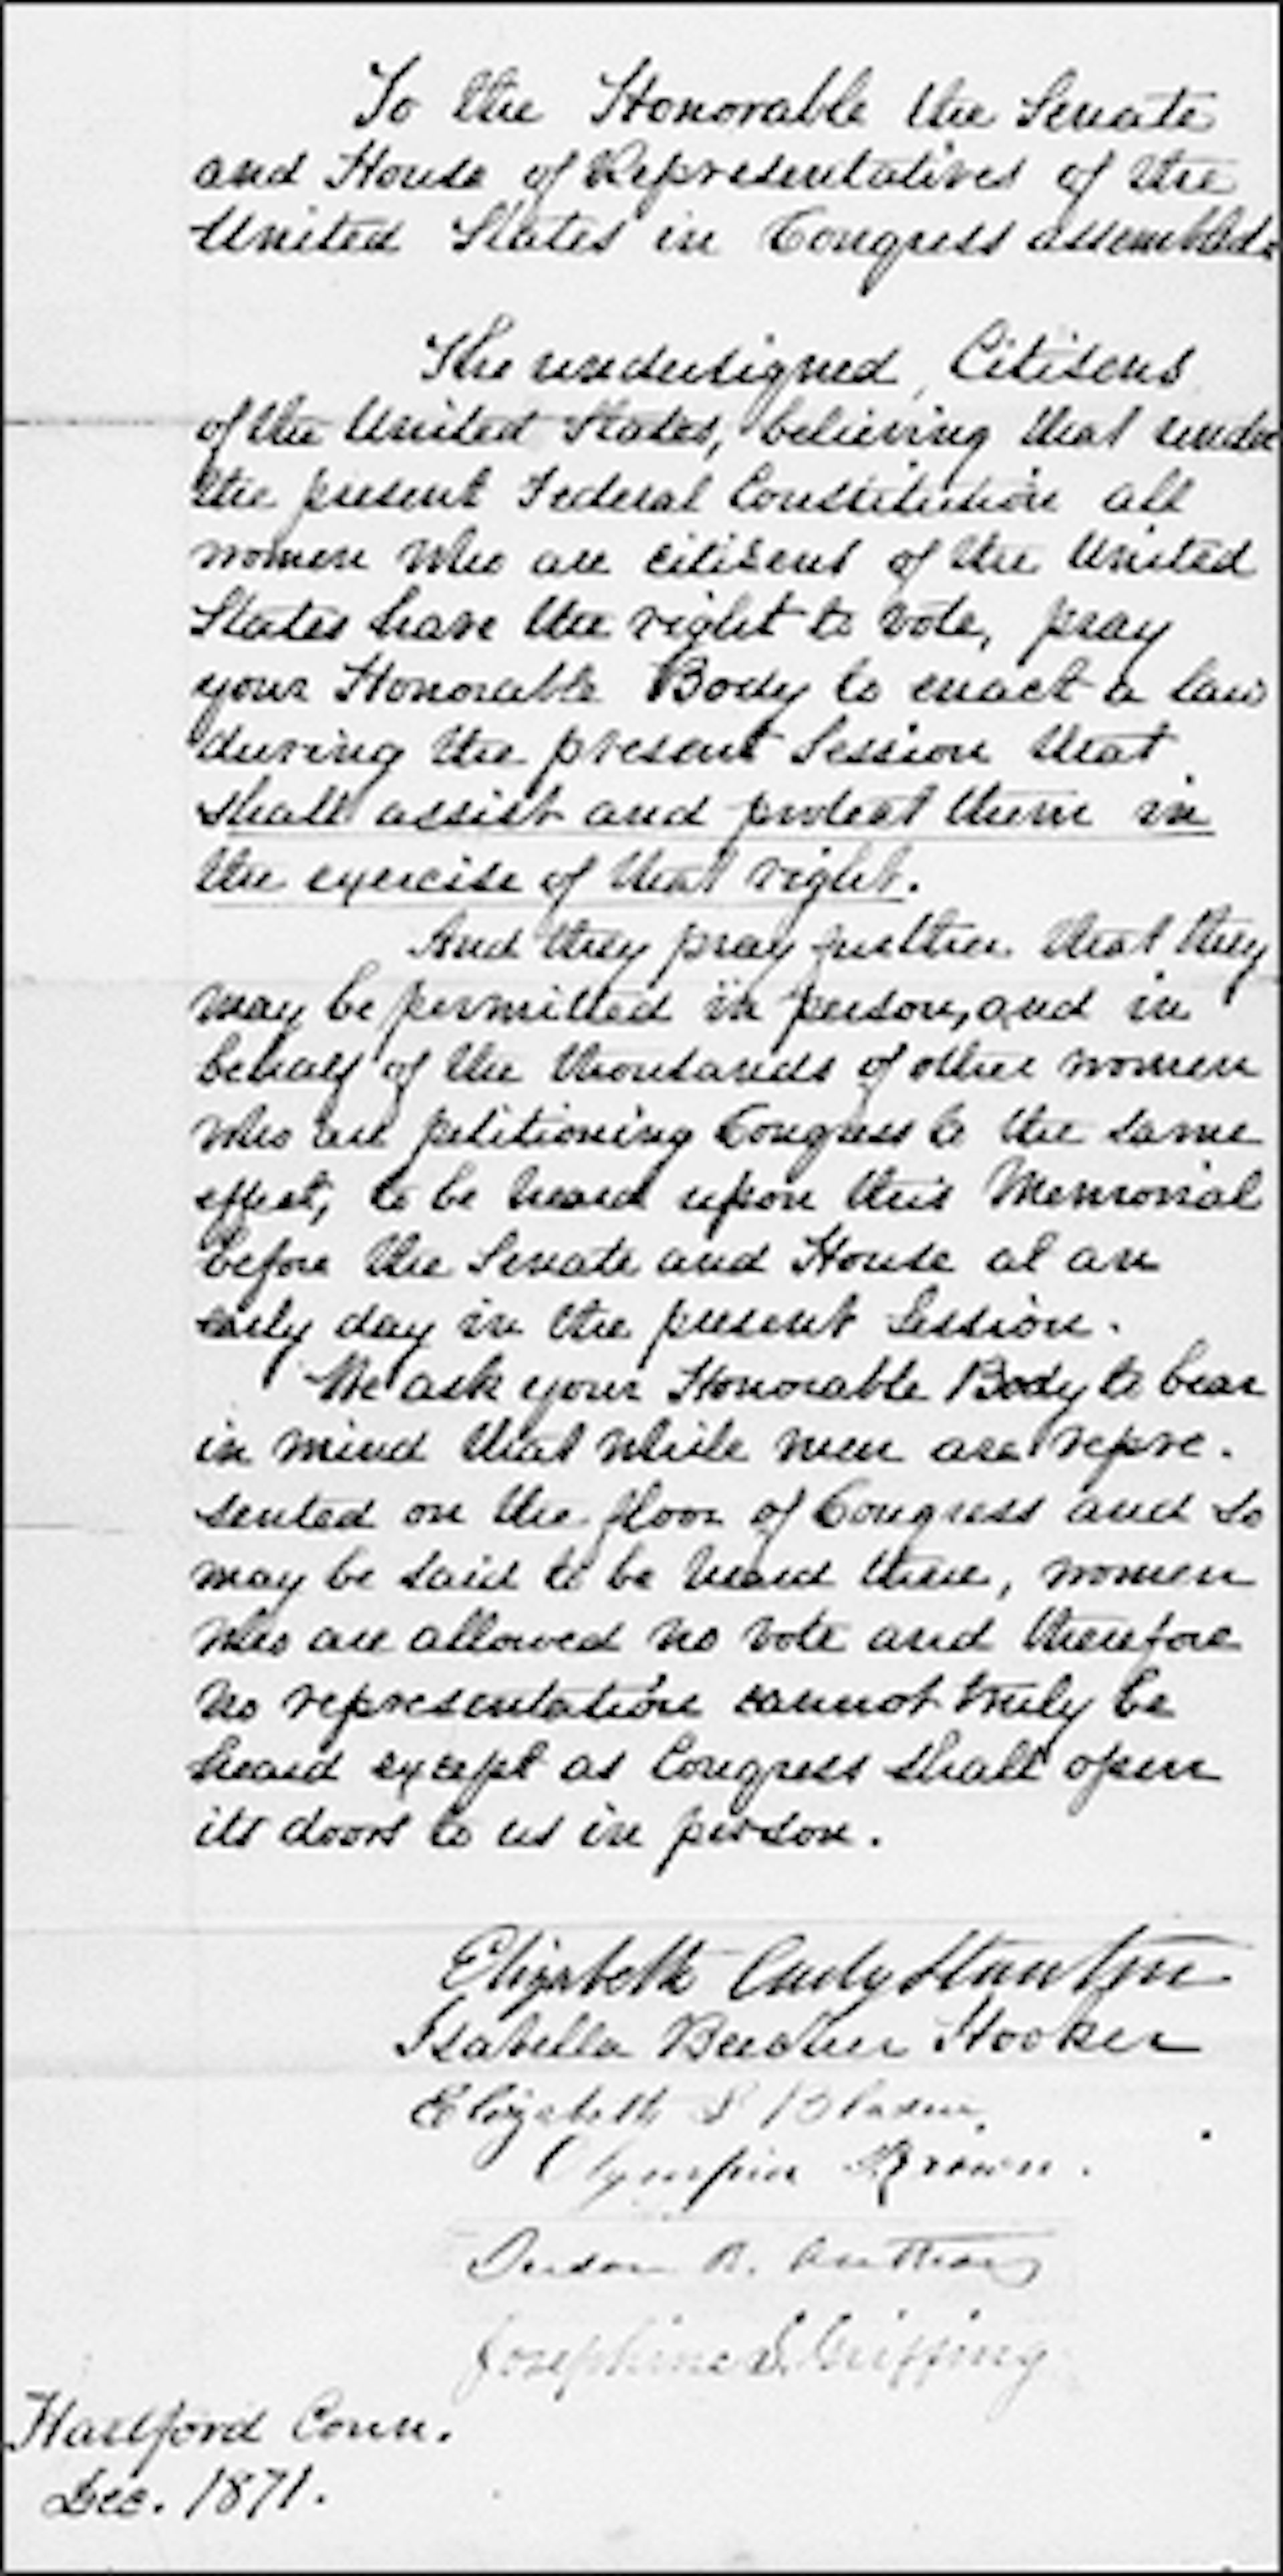 To the Honorable the Senate
and House of Representatives of the
United States in Congress assembled:
The undersigned, Citizens
of the United States, believing that under
the present Federal Constitution all
women who are citizens of the United
States have the right to vote, pray
your Honorable Body to enact a law
during the present Session that
shall assist and protect them in
the exercise of that right.
And they pray further that they
may be permitted in person, and in
behalf of the thousands of other women
who are petitioning Congress to the same
effect, to be heard upon this Memorial
before the Senate and House at an
early day in the present Session.
We ask your Honorable Body to bear
in mind that while men are repre-
sented on the floor of Congress and so
may be said to be heard there, women
who are allowed no vote and therefore
no representation cannot truly be
heard except as Congress shall open
its doors to us in person.
Elizabeth Cady Stanton
Isabella Beecher Hooker
Elizabeth S Bladen
Olympia Brown.
Susan B. Anthony
Josephine S. Griffing
Hartford Conn.
Dec. 1871.